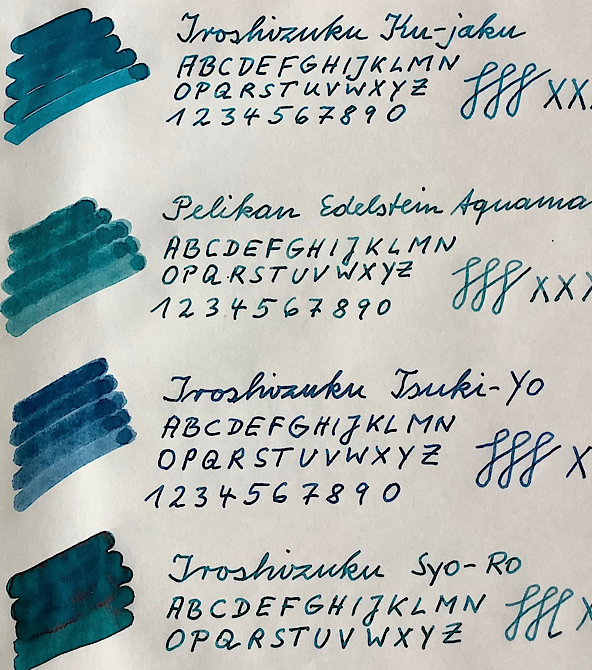 Iroshizuku Ku-jaku
ABCDEFGHIJKLMN
OPQRSTUVWXYZ
1234567890
fff XX
Pelikan Edelstein Aquama
ABCDEFGHIJKLMN
OPQRSTUVWXYZ
1234567890
fff XXX
Iroshizuku Tsuki-Yo
ABCDEFGHIJKLMN
OPQRSTUVWXYZ
1234567890
fff X
Iroshizuku Syo-Ro
ABCDEFGHIJKLMN
OPQRSTUVWXYZ
fff X